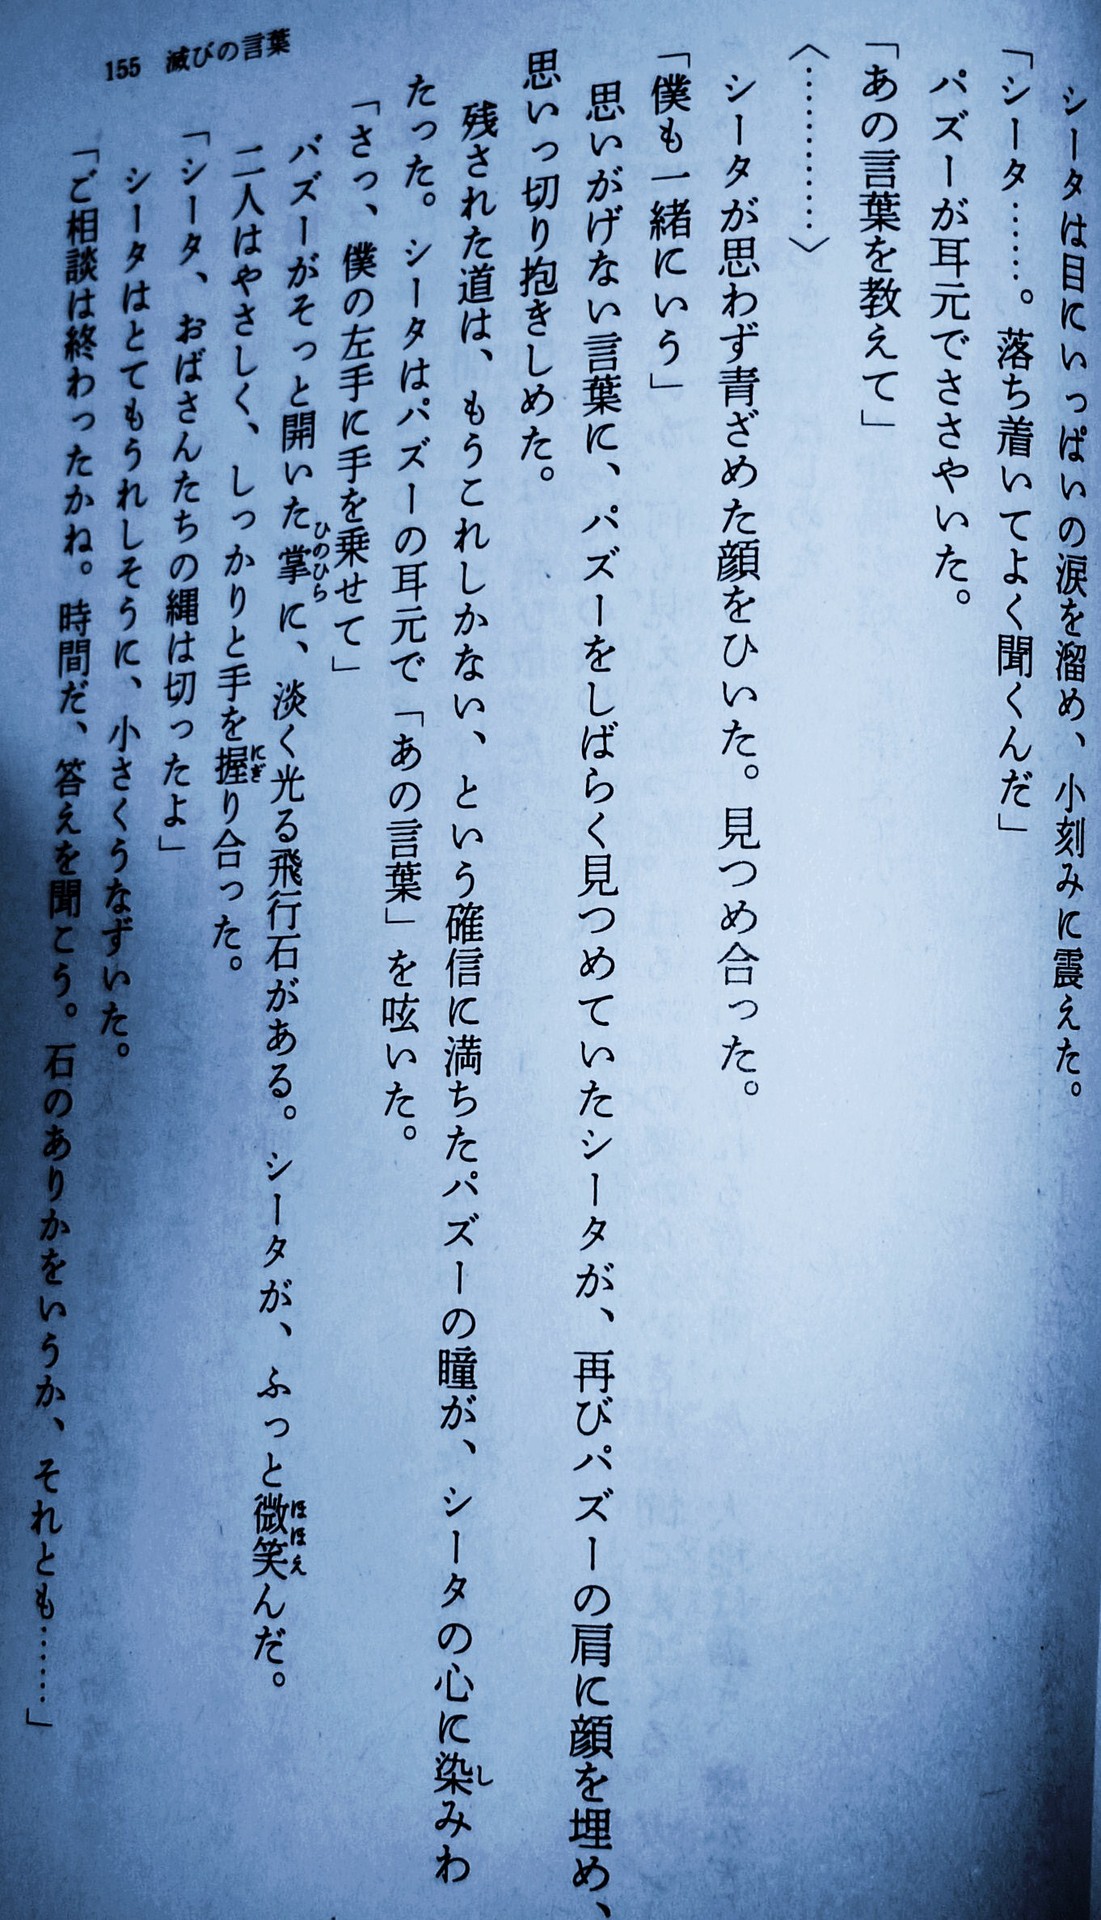 シータは目にいっぱいの涙を溜め、小刻みに震えた。
「シータ……。落ち着いてよく聞くんだ」
パズーが耳元でささやいた。
「あの言葉を教えて」
〈…………〉
シータが思わず青ざめた顔をひいた。見つめ合った。
「僕も一緒にいう」
思いがげない言葉に、パズーをしばらく見つめていたシータが、再びパズーの肩に顔を埋め、
思いっ切り抱きしめた。
残された道は、もうこれしかない、という確信に満ちたパズーの瞳が、シータの心に染しみわ
たった。シータはパズーの耳元で「あの言葉」を呟いた。
「さっ、僕の左手に手を乗せて」
パズーがそっと開いた掌ひのひらに、淡く光る飛行石がある。シータが、ふっと微笑ほほえんだ。
二人はやさしく、しっかりと手を握にぎり合った。
「シータ、おばさんたちの縄は切ったよ」
シータはとてもうれしそうに、小さくうなずいた。
「ご相談は終わったかね。時間だ、答えを聞こう。石のありかをいうか、それとも……」
155 滅びの言葉